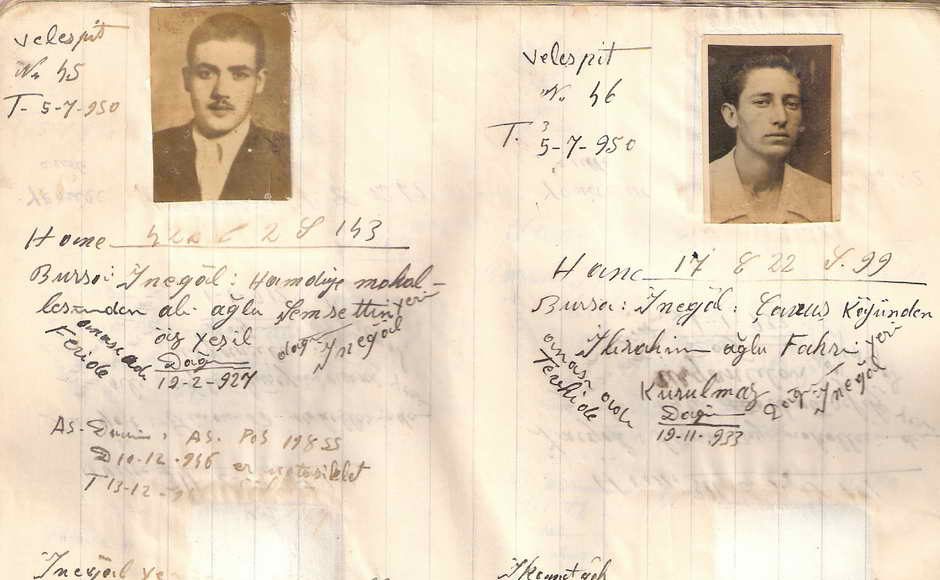 velespit
No 45
T- 5-7-950
Hane C 2 S 143
Bursa: İnegöl: Hamdiye mahal-
lesinden ali oğlu Şemsettin
öz yeşil
Doğ
12-2-927
anası adı
Feride
doğ yeri
İnegöl
AS. PoS
D 10-12-946
T 13-12-
velespit
No 46
T. 5-7-950
3
Hane 17 C 22 S. 99
Bursa: İnegöl: Çavuş Köyünden
İbrahim oğlu Fahri
Kurulmaz
Doğ
19-11-933
anası adı
doğ yeri
İnegöl
İnegöl